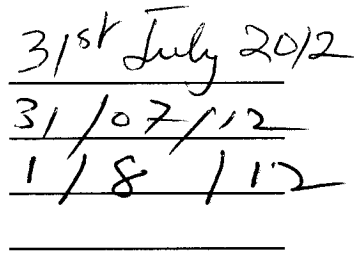 31st July 2012
31/07/12
1/8/12